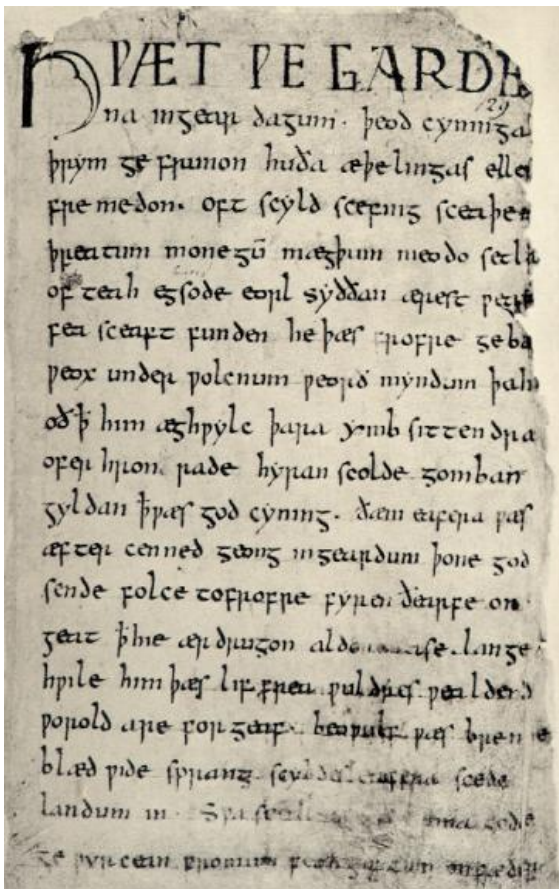 HǷÆT ǷE GARDE
129
na ingear dagum · þeod cyninga
þrym ge frunon huða æþelingas ellen
fre medon. oft scyld scefing sceaþen
þreatum monegū mægþum meodo setla
of teah egsode eorl syððan ærest ƿear
fea sceaft funden heþæs frofre geba
ƿeox under ƿolcnum ƿeorð myndum þah
oð ꝥ him æghƿylc þara ymb sittendra
ofer hron rade hyran scolde gomban
gyldan ꝥ ƿæs god cyning. ðæm eafera ƿæs
æfter cenned geong ingeardum þone god
sende folce tofrofre fyren ðearfe on
geat ꝥ hie ær drugon aldor ase. lange
hƿile him þæs lif frea ƿuldres ƿealdend
ƿorold are for geaf. beoƿulf ƿæs breme
blæd ƿide sprang scyldes eafera scede
landum in. Sƿa sceal ma gode
ge ƿyrcean fromum feoh giftum